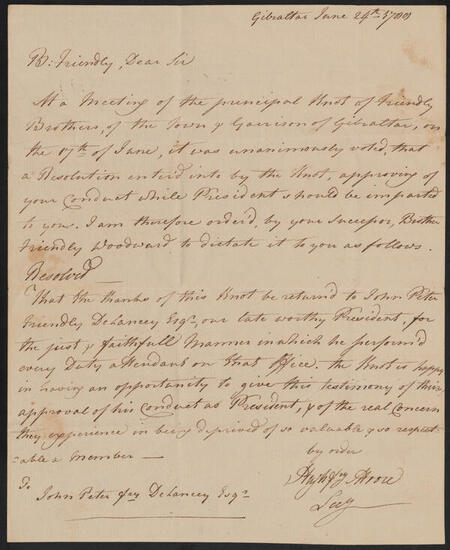 Gibraltar June 24th 1788
Br: Friendly, Dear Sir
At a Meeting of the principal Knot of Friendly
Brothers, of the Town & Garrison of Gibraltar, on
the 17th of June, it was unanimously voted, that
a Resolution enterd into by the Knot, approving of
your Conduct while President should be imparted
to you. I am therefore orderd, by your Successor, Brother
Friendly Woodward to dictate it to you as follows.
Resolved
That the thanks of this Knot be returnd to John Peter
Friendly DeLancey Esqr. our late worthy President, for
the just & faithfull Manner in which he perform'd
every Duty attendant on that Office. the Knot is happy
in having an opportunity to give this testimony of their
approval of his Conduct as President, & of the real Concern
they experience in being deprived of so valuable & so respect-
-able a Member —
by order
To
Hugh Moore
John Peter DeLancey Esqr.
Secy